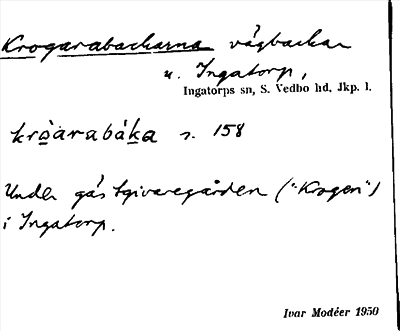 Krogarabackarna vägbackar
u. Ingatorp,
Ingatorps sn, S. Vedbo hd. Jkp. l.
kròarabáka s. 158
Under gästgivaregården ("Krogen")
i Ingatorp.
Ivar Modéer 1950